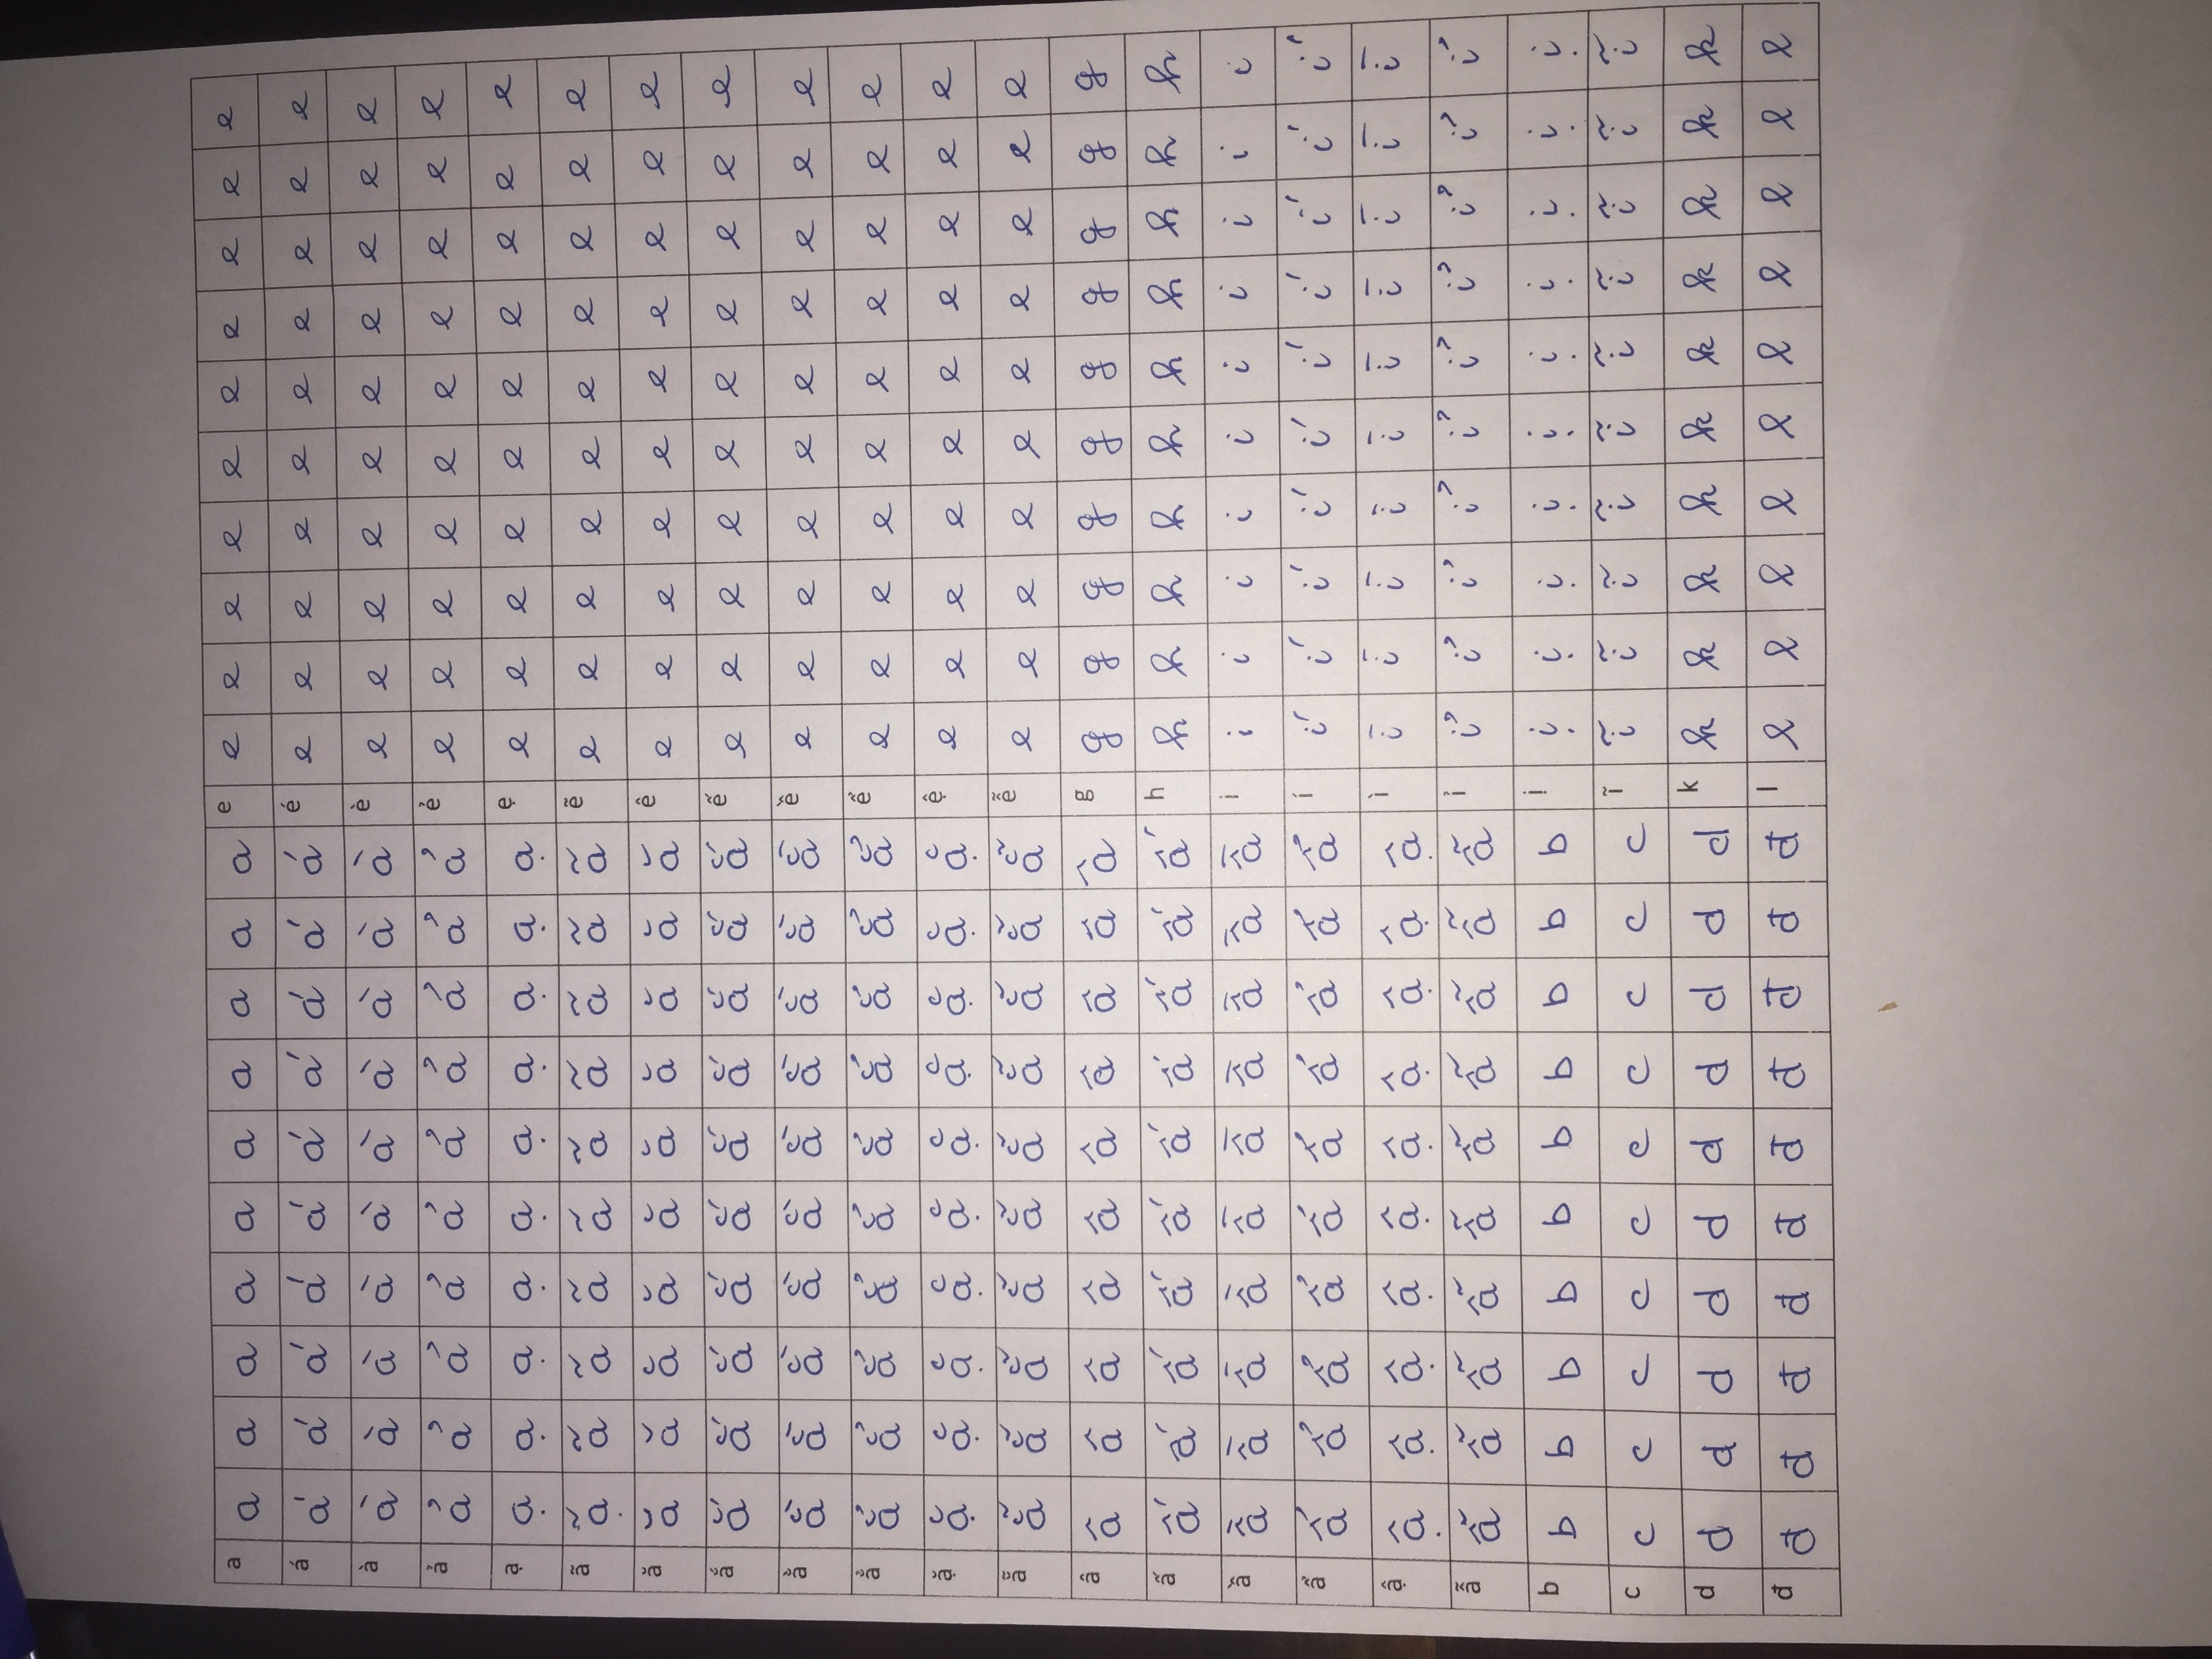 a a a a a a a a a a a e e e e e e e e e e e
á á á á á á á á á á á é e e e e e e e e e e
à à à à à à à à à à à è e e e e e e e e e e
ả ả ả ả ả ả ả ả ả ả ả ẻ e e e e e e e e e e
ạ ạ ạ ạ ạ ạ ạ ạ ạ ạ ạ ẹ e e e e e e e e e e
ã ã ã ã ã ã ã ã ã ã ã ẽ e e e e e e e e e e
ă ă ă ă ă ă ă ă ă ă ă ê e e e e e e e e e e
ắ ắ ắ ắ ắ ắ ắ ắ ắ ắ ắ ế e e e e e e e e e e
ằ ằ ằ ằ ằ ằ ằ ằ ằ ằ ằ ề e e e e e e e e e e
ẳ ẳ ẳ ẳ ẳ ẳ ẳ ẳ ẳ ẳ ẳ ể e e e e e e e e e e
ặ ặ ặ ặ ặ ặ ặ ặ ặ ặ ặ ệ e e e e e e e e e e
ẵ ẵ ẵ ẵ ẵ ẵ ẵ ẵ ẵ ẵ ẵ ễ e e e e e e e e e e
â â â â â â â â â â â g g g g g g g g g g g
ấ ấ ấ ấ ấ ấ ấ ấ ấ ấ ấ h h h h h h h h h h h
ầ ầ ầ ầ ầ ầ ầ ầ ầ ầ ầ i i i i i i i i i i i
ẩ ẩ ẩ ẩ ẩ ẩ ẩ ẩ ẩ ẩ ẩ í í í í í í í í í í í
ậ ậ ậ ậ ậ ậ ậ ậ ậ ậ ậ ì ì ì ì ì ì ì ì ì ì ì
ẫ ẫ ẫ ẫ ẫ ẫ ẫ ẫ ẫ ẫ ẫ ỉ ỉ ỉ ỉ ỉ ỉ ỉ ỉ ỉ ỉ ỉ
b b b b b b b b b b b ị ị ị ị ị ị ị ị ị ị ị
c c c c c c c c c c c ĩ ĩ ĩ ĩ ĩ ĩ ĩ ĩ ĩ ĩ ĩ
d d d d d d d d d d d k k k k k k k k k k k
đ đ đ đ đ đ đ đ đ đ đ l l l l l l l l l l l